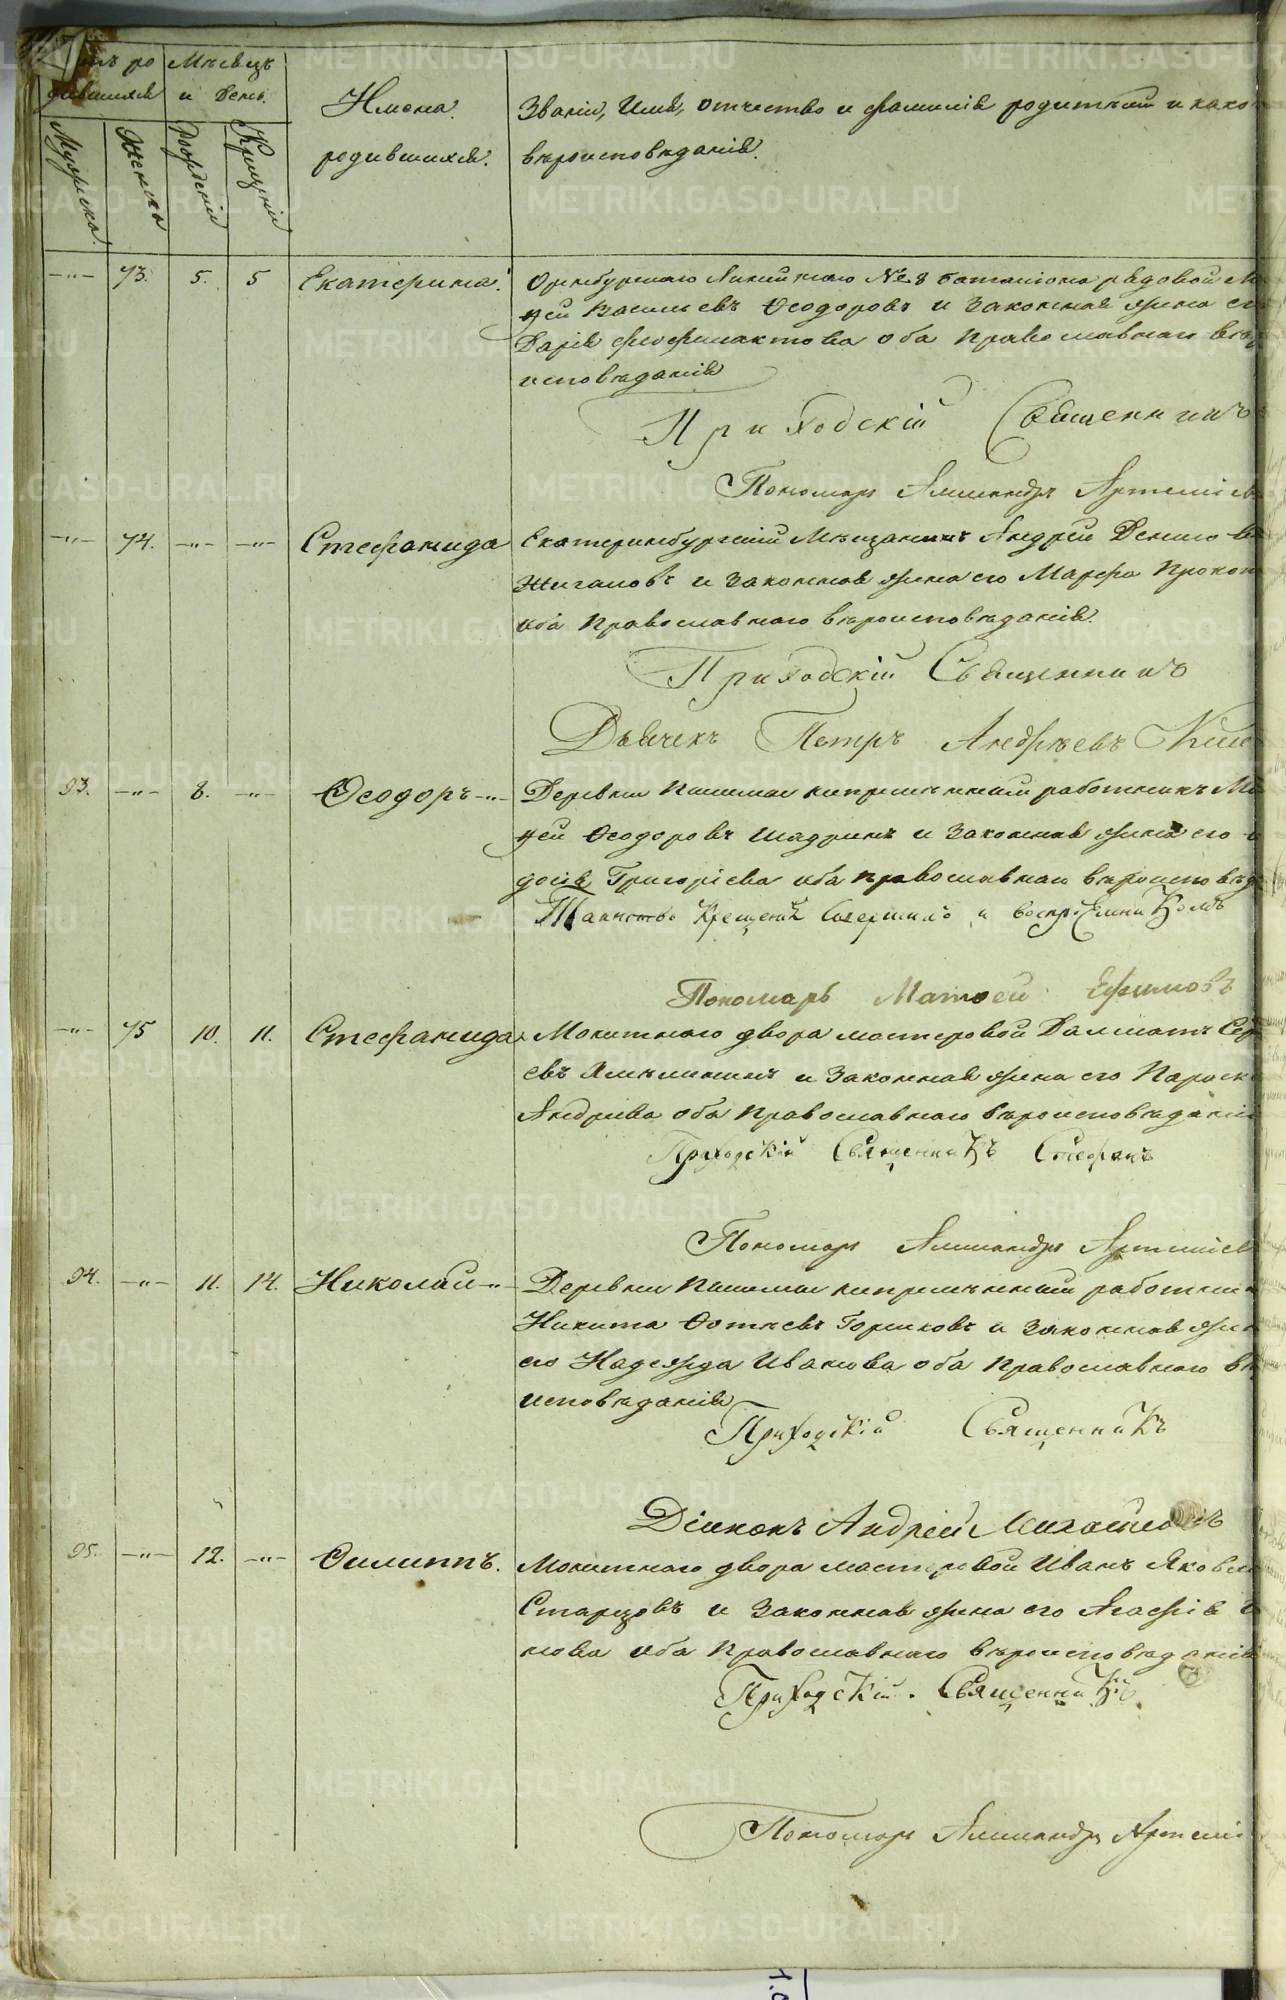 Мѣсяцъ
дившихся и день.
Мужеска.
Женска
Рожденія
Крещенія
Имена
родившихся.
Званіе, Имя, отчество и фамилія родителей и како
вѣроисповѣданія.
-"- 73. 5. 5 Екатерина. Оренбургскаго Линейнаго №8 баталіона рядовой
Васильевъ Ѳеодоровъ и законная жена
Дарія Феофилактова оба православнаго
исповѣданія
Приходскій Священникъ
Пономарь Александръ Артеміев
-"- 74. -"- -"- Стефанида Екатеринбургскій Мѣщанинъ Андрей
Жигаловъ и законная жена его Марфа Прокоп
оба Православнаго вѣроисповѣданія.
Приходскій Священникъ
Дьячекъ Петръ Андреевъ
93. -"- 8. -"- Ѳеодоръ -"- Деревни непремѣнный работникъ
Ѳеодоровъ Шадринъ и законная жена его
досія Григоріева оба православнаго вѣроисповѣд
Таинство Крещенія Совершилъ и
Пономарь Матѳей Ефимовъ
-"- 75 10. 11. Стефанида Монетнаго двора мастеровой Далматъ Сер
евъ и законная жена его Параске
Андреева оба православнаго вѣроисповѣданія
Приходскій Священникъ Стефанъ
Пономарь Александръ Артеміев
94. -"- 11. 14. Николай -"- Деревни непремѣнный работни
Никита Фотіевъ Горшковъ и законная жен
его Надежда Иванова оба православнаго вѣ
исповѣданія
Приходскій Священникъ
Діаконъ Андрей
95. -"- 12. -"- Филиппъ. Монетнаго двора мастеровой Иванъ Яковле
Старцовъ и законная жена его Агафія
нова оба православнаго вѣроисповѣданія
Приходскій. Священникъ
Пономарь Александръ Артемі